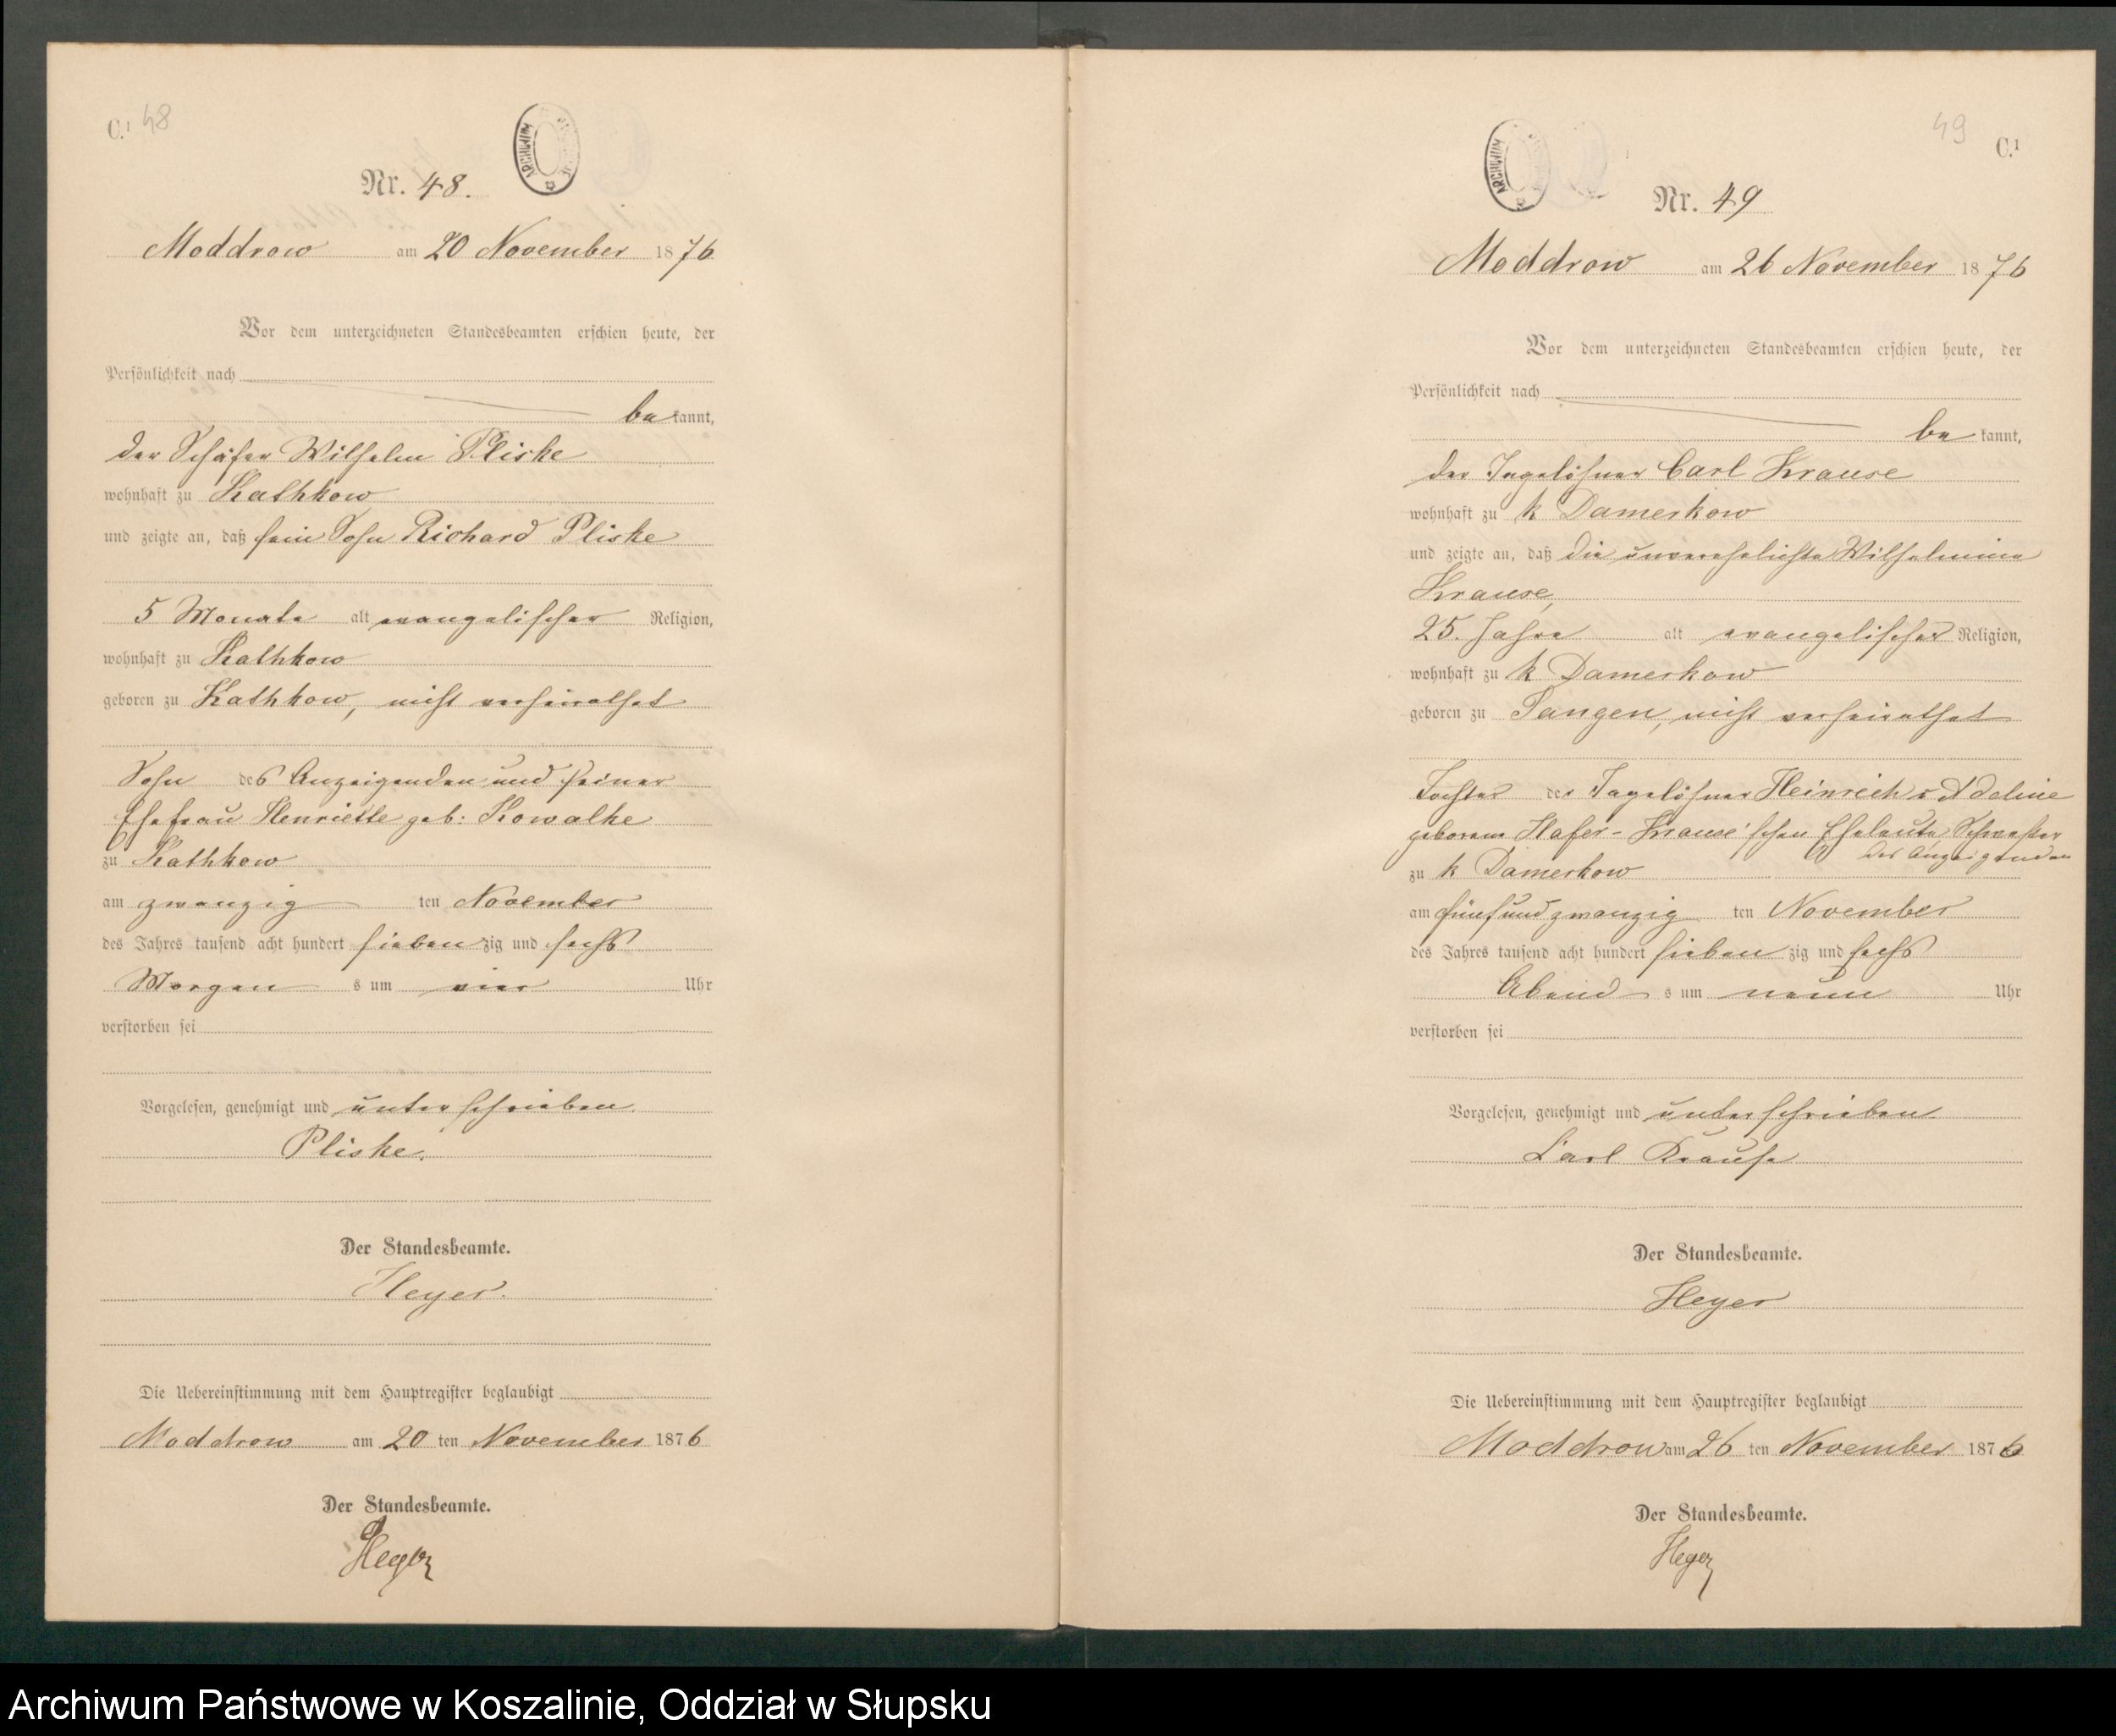 C.¹ 48
ARCHIWUM
Nr. 48.
Moddrow am 20 November 1876
Vor dem unterzeichneten Standesbeamten erschien heute, der
Persönlichkeit nach
be kannt,
der Schäfer Wilhelm Pliske
wohnhaft zu Kathkow
und zeigte an, daß sein Sohn Richard Pliske
5 Monate alt evangelischer Religion,
wohnhaft zu Kathkow
geboren zu Kathkow, nicht verheirathet
Sohn des Anzeigenden und seiner
Ehefrau Henriette geb: Kowalke
zu Kathkow
am zwanzig ten November
des Jahres tausend acht hundert sieben zig und sechs
Morgen s um vier Uhr
verstorben sei
Vorgelesen, genehmigt und unterschrieben.
Pliske.
Der Standesbeamte.
Heyer.
Die Uebereinstimmung mit dem Hauptregister beglaubigt
Moddrow am 20 ten November 1876
Der Standesbeamte.
Heyer
49 C.¹
ARCHIWUM
Nr. 49
Moddrow am 26 November 1876
Vor dem unterzeichneten Standesbeamten erschien heute, der
Persönlichkeit nach
be kannt,
der Tagelöhner Carl Krause
wohnhaft zu k Damerkow
und zeigte an, daß die unverehelichte Wilhelmine
Krause,
25. Jahre alt evangelischer Religion,
wohnhaft zu k Damerkow
geboren zu Tangen, nicht verheirathet
Tochter der Tagelöhner Heinrich u Adeline
geborene Hafer-Krause'schen Eheleute Schwester
des Anzeigenden
zu k Damerkow
am fünfundzwanzig ten November
des Jahres tausend acht hundert sieben zig und sechs
Abend s um neun Uhr
verstorben sei
Vorgelesen, genehmigt und unterschrieben
Carl Krause
Der Standesbeamte.
Heyer
Die Uebereinstimmung mit dem Hauptregister beglaubigt
Moddrow am 26 ten November 1876
Der Standesbeamte.
Heyer
Archiwum Państwowe w Koszalinie, Oddział w Słupsku